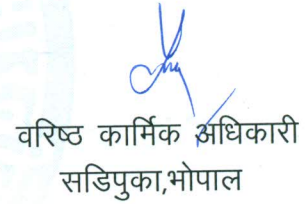 वरिष्ठ कार्मिक अधिकारी
सडिपुका,भोपाल